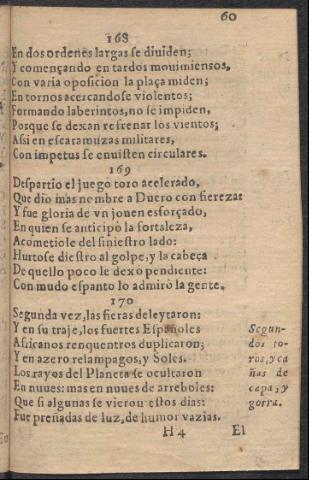 60
168
En dos ordenes largas se diuiden;
Y començando en tardos mouimientos,
Con varia oposicion la plaça miden;
En tornos acercandose violentos;
Formando laberintos, no se impiden,
Porque se dexan refrenar los vientos;
Assi en escaramuzas militares,
Con impetus se enuisten circulares.
169
Despartio el juego toro acelerado,
Que dio mas nembre a Duero con fiereza:
Y fue gloria de vn jouen esforçado,
En quien se anticipò la fortaleza,
Acometiole del siniestro lado:
Hurtose diestro al golpe, y la cabeça
De quello poco le dexò pendiente:
Con mudo espanto lo admirò la gente.
170
Segunda vez, las fieras deleytaron:
Y en su traje, los fuertes Españoles
Africanos renquentros duplicaron;
Y en azero relampagos, y Soles.
Los rayos del Planeta se ocultaron
En nuues: mas en nuues de arreboles:
Que si algunas se vierou estos dias:
Fue preñadas de luz, de humor vazias.
Segun-
dos to-
ros, y ca
ñas de
capa, y
gorra.
H 4 El